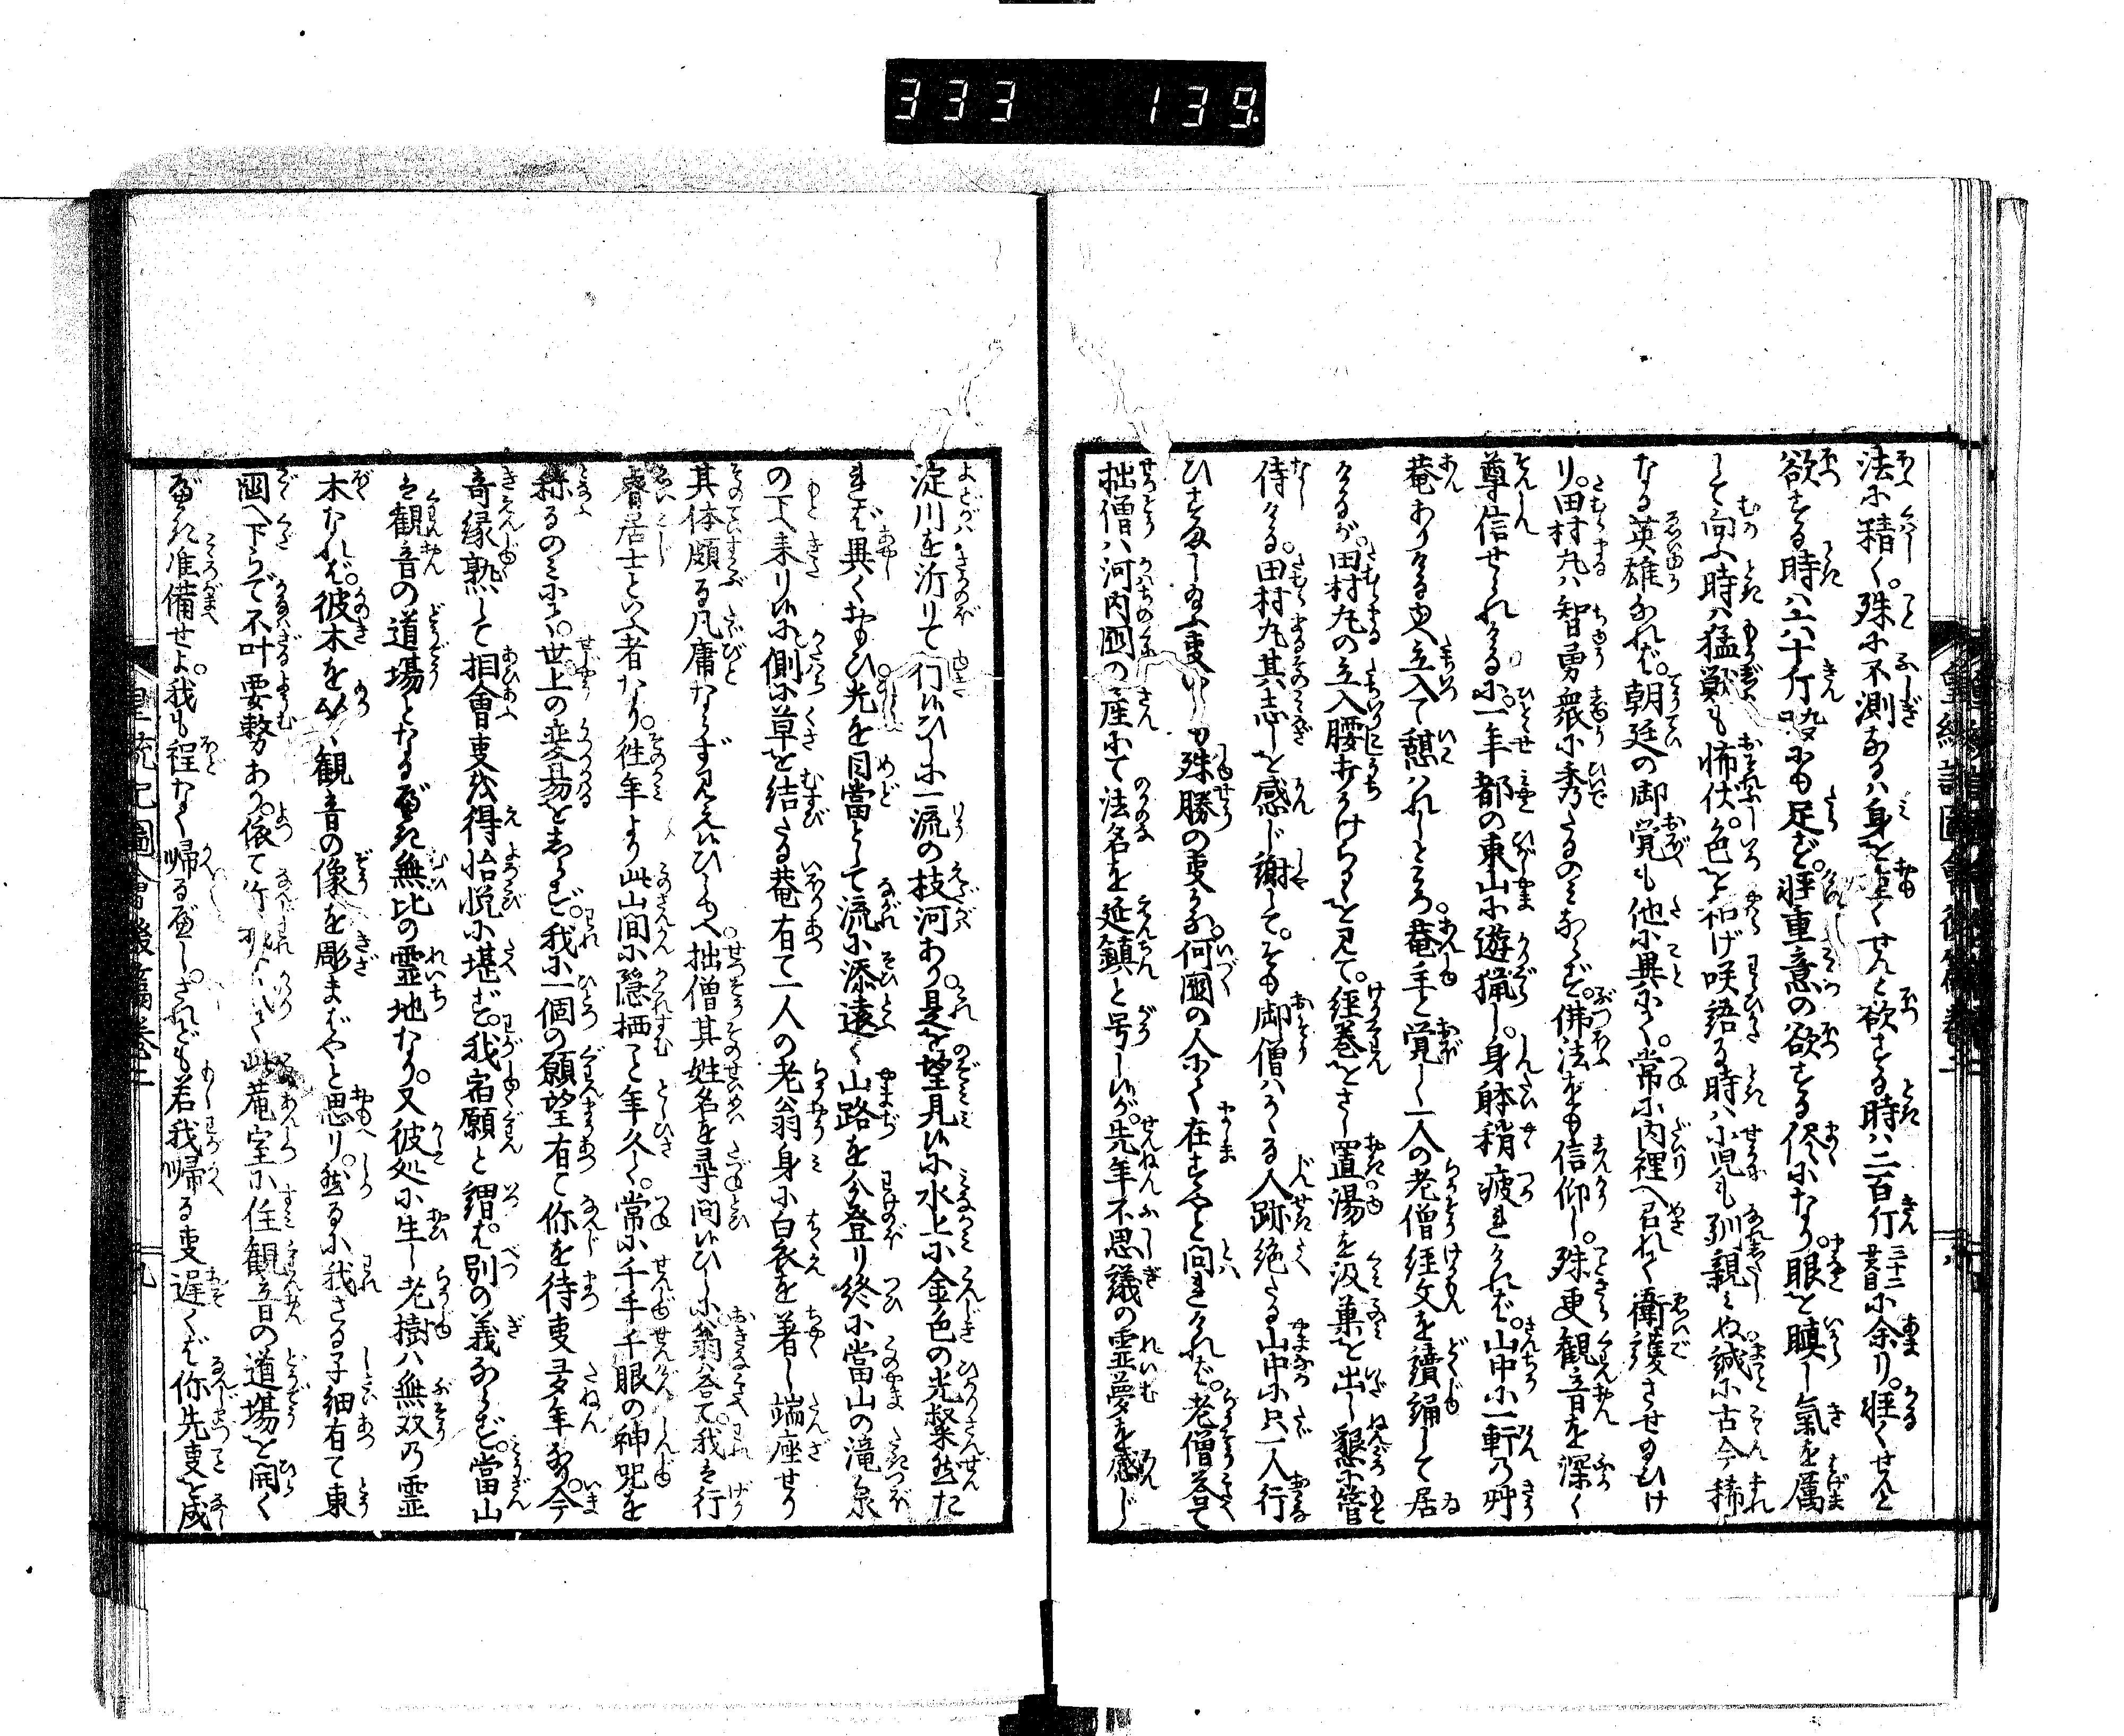 333 139
法に精く。殊に不測なるハ身を重くせんと欲する時ハ二百斤三十二貫目に余り。軽くせんと
欲する時ハ六十斤にも足ず。軽重意の欲する侭になり。眼を瞋し氣を厲
して向ふ時ハ猛獣も怖伏。色を和げ咲語る時ハ小児も馴親しみぬ誠に古今稀
なる英雄なれば。朝廷の御覚も他に異にく。常に内裡へ召れて衛護させ給ひけ
り。田村丸ハ智勇衆に秀たるのミならず。佛法をも信仰し。殊更観音を深く
尊信せられけるに一年都の東山に遊猟し。身躰稍疲れければ。山中に一軒の艸
菴ありける更立入て憩ハれしところ。菴主と覚しく一人の老僧経文を讀誦して居
けるが。田村丸の立入腰うちかけらるゝを見て。経巻をさし置湯を汲菓を出し懇に管
待ける。田村丸其志しを感じ謝して。そも御僧ハかゝる人跡絶たる山中に只一人行
ひすまし給ふ事いとも殊勝の事かな。何國の人にて在すやと問れければ。老僧答て
拙僧ハ河内國の産にて法名を延鎮と号し候が。先年不思議の霊夢を感じ
淀川を泝りて行候ひしに一流の枝河あり。是を望見候に水上に金色の光粲然た
れば異くおもひ光を目當として流に添遠く山路を分登り終に當山の滝泉
の下へ来り候に側に草を結たる菴有て一人の老翁身に白衣を著し端座せり
其体頗る凡庸ならず見え候ひしゆへ。拙僧其姓名を尋問候ひしに。翁答て。我は行
睿居士といふ者なり。往年より此山間に隠栖こと年久く。常に千手千眼の神咒を
称るのミにて。世上の変易をしらず。我に一個の願望有て你を待事多年なり。今
奇縁熟して相會事を得怡悦に堪ず。我宿願と謂ば別の義ならず。當山
は観音の道場となるべき無比の霊地なり。又彼処に生し老樹ハ無双の霊
木なれば。彼木を以て観音の像を彫まばやと思へり。然るに我さる子細有て東
國へ下らで不叶要務あり。依て你我に代りて此菴室に住観音の道場を開く
べき准備せよ。我も程なく帰るべし。されども若我帰る事遅くば你先事を成